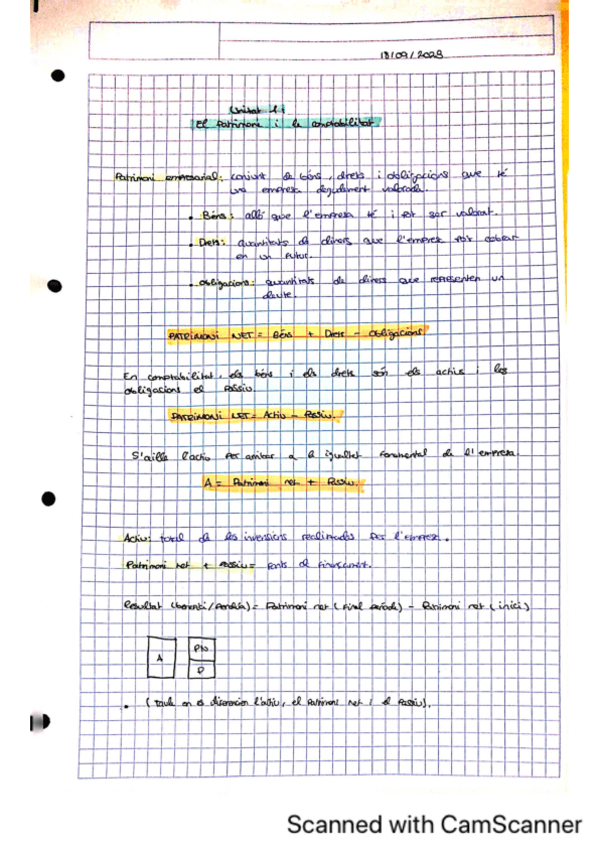 18/09/2023
Unitat 1:
El Patrimoni i la comptabilitat
Patrimoni empresarial: conjunt de béns, drets i obligacions que té
una empresa degudament valorada.
• Béns: allò que l'empresa té i pot ser valorat.
• Drets: quantitats de diners que l'empresa pot cobrar
en un futur.
• Obligacions: quantitats de diners que representen un
deute.
PATRIMONI NET = Béns + Drets - Obligacions
En comptabilitat, els béns i els drets són els actius i les
obligacions el Passiu.
PATRIMONI NET = Actiu - Passiu.
S'aïlla l'actiu per arribar a la igualtat fonamental de l'empresa.
A = Patrimoni net + Passiu.
Actiu: total de les inversions realitzades per l'empresa.
Patrimoni net + Passiu = fonts de finançament.
Resultat (benefici/Pèrdua) = Patrimoni net (final període) - Patrimoni net (inici)
A
PN
P
• (taula on es diferencien l'actiu, el Patrimoni net i el Passiu).
Scanned with CamScanner